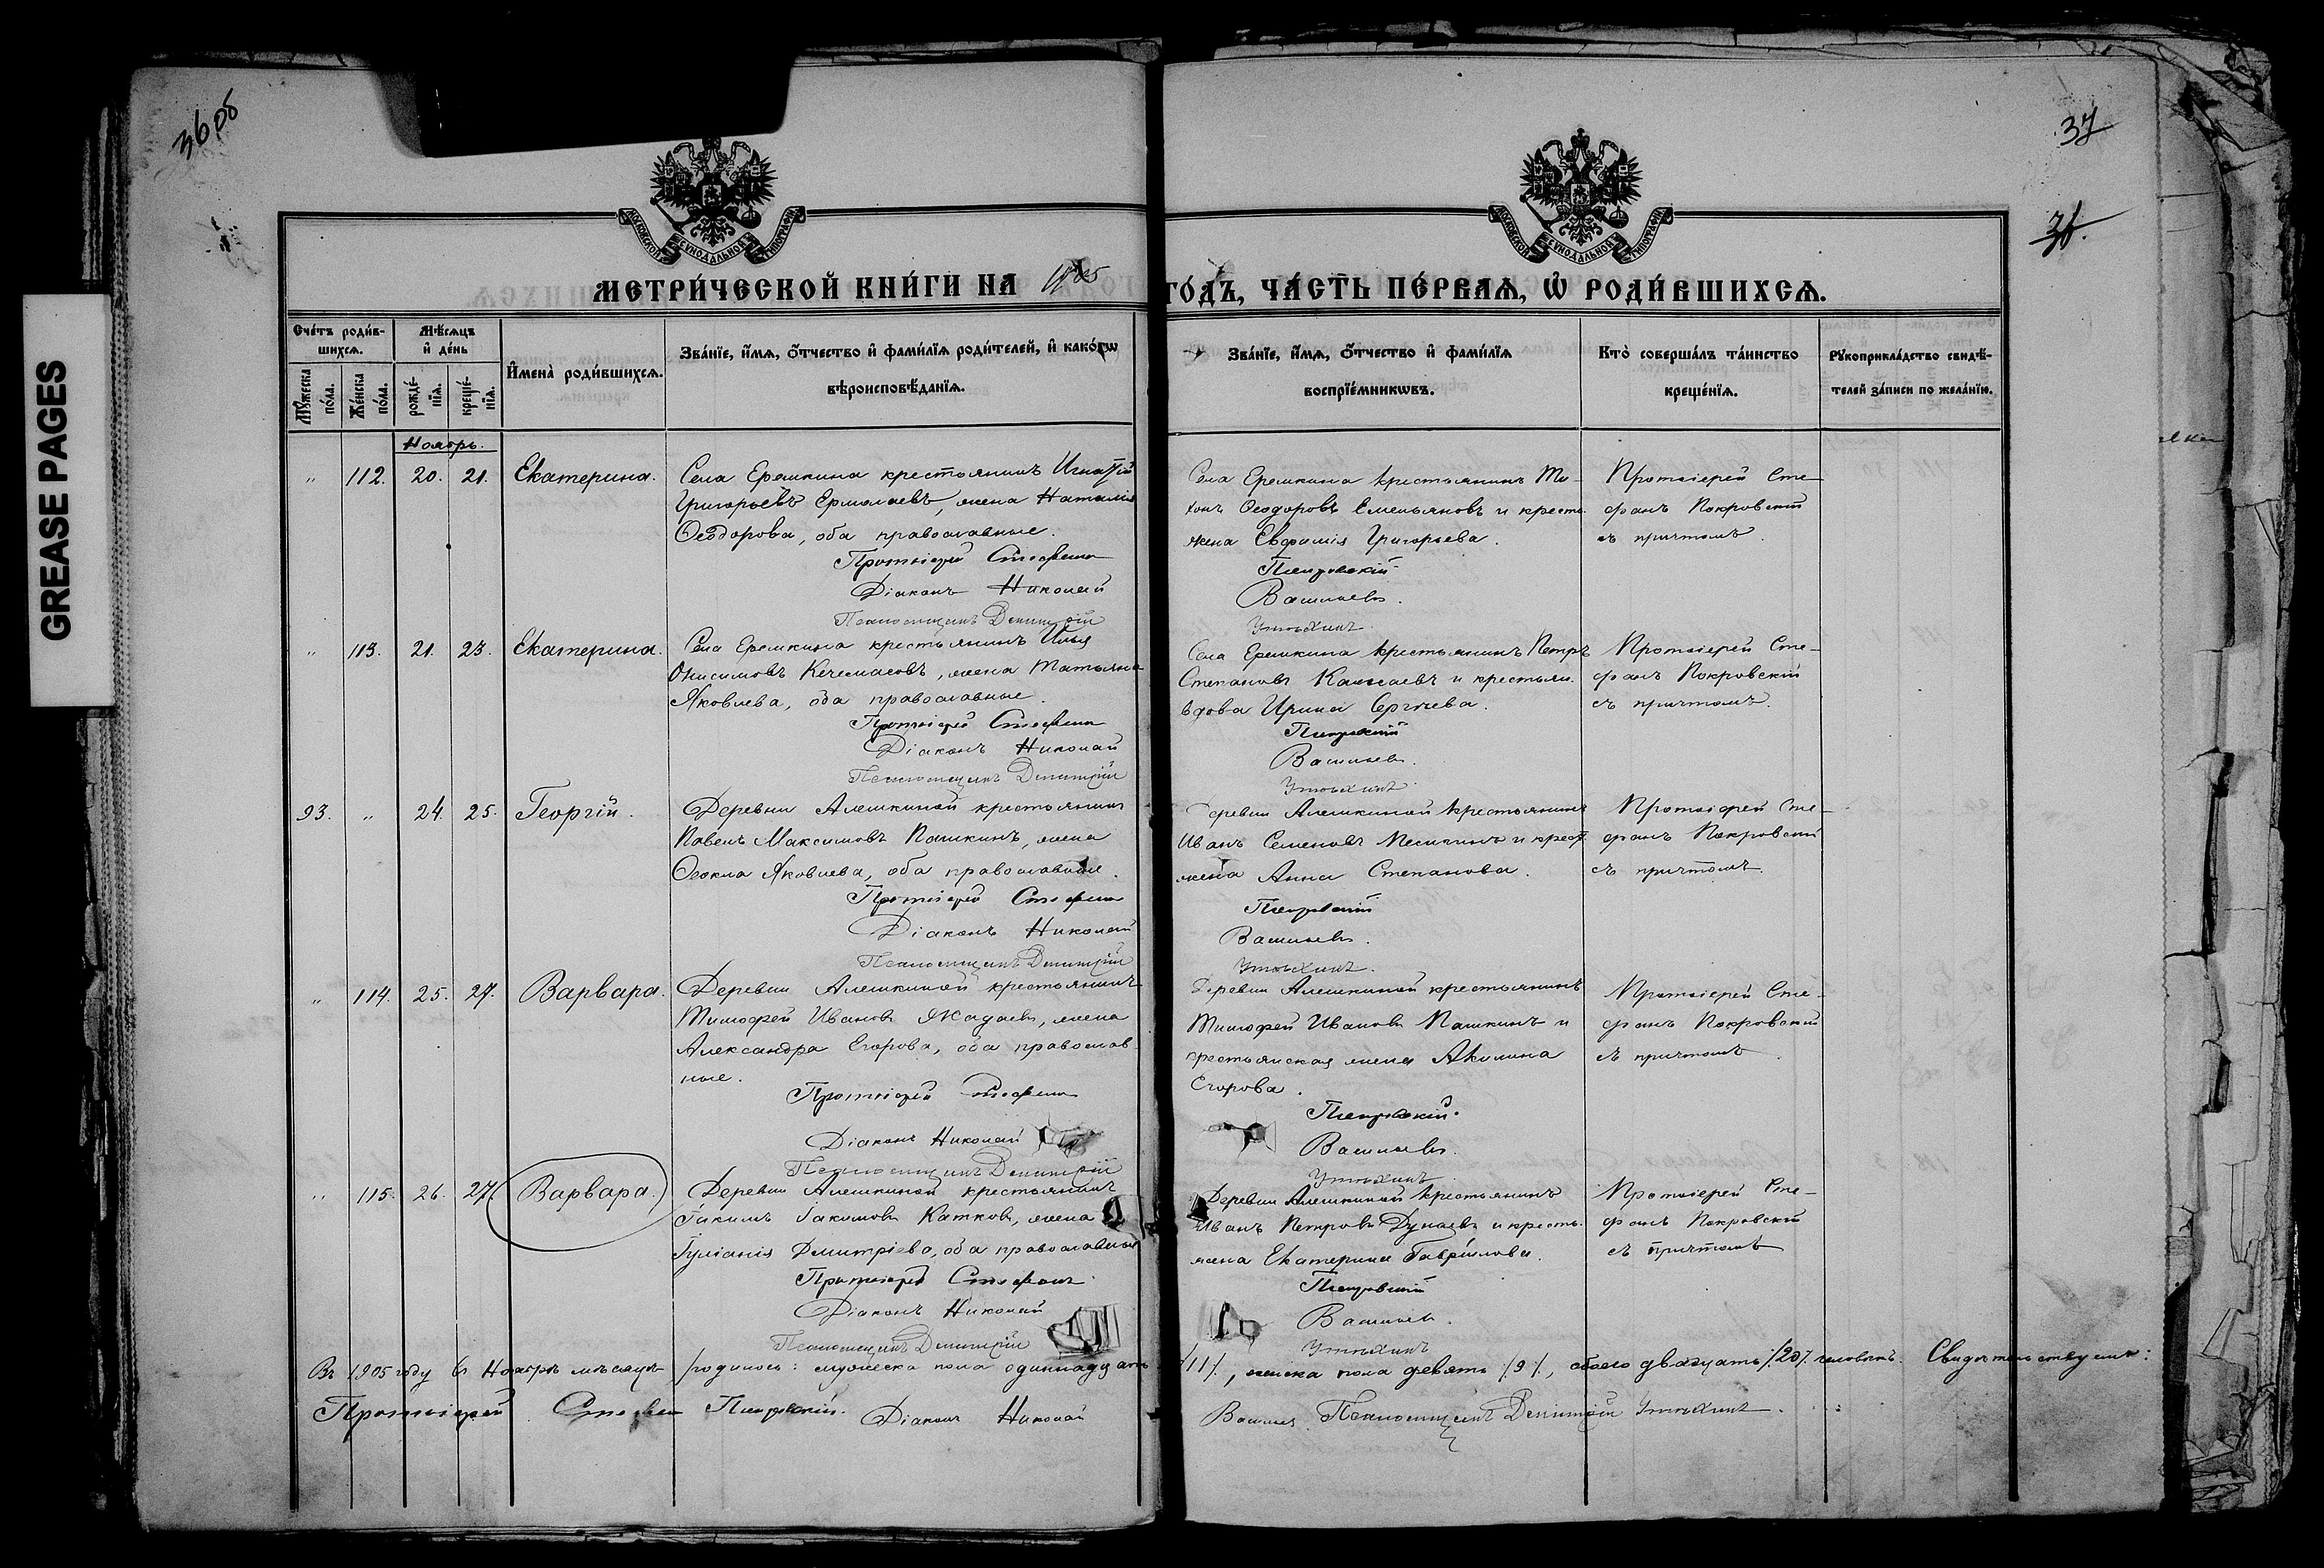 36 об
37
36.
GREASE PAGES
МОСКОВСКОЙ СѴНОДАЛЬНОЙ ТИПОГРАФІИ
МОСКОВСКОЙ СѴНОДАЛЬНОЙ ТИПОГРАФІИ
МЕТРИ́ЧЕСКОЙ КНИ́ГИ НА 1905
ГО́ДЪ, ЧА́СТЬ ПЕ́РВАѦ, Ѡ҆ РОДИ́ВШИХСѦ.
Сче́тъ роди́в-
шихсѧ.
Мꙋ́жеска по́ла.
Же́нска по́ла.
Мѣ́сѧцъ
и҆ де́нь
рожде́-нїѧ.
креще́-нїѧ.
И҆мена̀ роди́вшихсѧ.
Зва́нїе, и҆́мѧ, ѻ҆́тчество и҆ фами́лїѧ роди́телей, и҆ како́гѡ
вѣроисповѣ́данїѧ.
Зва́нїе, и҆́мѧ, ѻ҆́тчество и҆ фами́лїѧ
воспрїе́мникѡвъ.
Кто̀ соверша́лъ та́инство
креще́нїѧ.
Рꙋкоприкла́дство свидѣ́-
телей за́писи по жела́нїю.
Ноябрь.
" 112. 20. 21. Екатерина.
Села Еремкина крестьянинъ Игнатій
Григорьевъ Ермолаевъ, жена Наталія
Ѳеодорова, оба православные.
Протоіерей Стефанъ
Діаконъ Николай
Псаломщикъ Димитрій
Села Еремкина крестьянинъ Ти-
хонъ Ѳеодоровъ Емельяновъ и крест.
жена Евфимія Григорьева.
Покровскій
Васильевъ.
Утѣхинъ.
Протоіерей Сте-
фанъ Покровскій
съ причтомъ.
" 113. 21. 23. Екатерина.
Села Еремкина крестьянинъ Илья
Онисимовъ Кечемасовъ, жена Татьяна
Яковлева, оба православные.
Протоіерей Стефанъ
Діаконъ Николай
Псаломщикъ Димитрій
Села Еремкина крестьянинъ Петръ
Степановъ и крестьян.
вдова Ирина Сергѣева.
Покровскій
Васильевъ.
Утѣхинъ.
Протоіерей Сте-
фанъ Покровскій
съ причтомъ.
93. " 24. 25. Георгій.
Деревни Алешкиной крестьянинъ
Павелъ Максимовъ Пашкинъ, жена
Ѳекла Яковлева, оба православные.
Протоіерей Стефанъ
Діаконъ Николай
Псаломщикъ Димитрій
Деревни Алешкиной крестьянинъ
Иванъ Семеновъ и крест.
жена Анна Степанова.
Покровскій
Васильевъ.
Утѣхинъ.
Протоіерей Сте-
фанъ Покровскій
съ причтомъ.
" 114. 25. 27. Варвара.
Деревни Алешкиной крестьянинъ
Тимофей Ивановъ Жадаевъ, жена
Александра Егорова, оба православ-
ные.
Протоіерей Стефанъ
Діаконъ Николай
Псаломщикъ Димитрій
Деревни Алешкиной крестьянинъ
Тимофей Ивановъ Пашкинъ и
крестьянская жена Акилина
Егорова.
Покровскій.
Васильевъ.
Утѣхинъ.
Протоіерей Сте-
фанъ Покровскій
съ причтомъ.
" 115. 26. 27. Варвара.
Деревни Алешкиной крестьянинъ
Іакимъ Іакимовъ Катковъ, жена
Іуліанія Дмитріева, оба православные
Протоіерей Стефанъ.
Діаконъ Николай
Псаломщикъ Димитрій
Деревни Алешкиной крестьянинъ
Иванъ Петровъ Дунаевъ и крестьн.
жена Екатерина Гаврилова.
Покровскій
Васильевъ.
Утѣхинъ
Протоіерей Сте-
фанъ Покровскій
съ причтомъ
Въ 1905 году въ Ноябрѣ мѣсяцѣ родилось: мужеска пола одиннадцать /11/, женска пола девять /9/, обоего двадцать /20/ человѣкъ. Свидѣтельствуемъ:
Протоіерей Стефанъ Покровскій. Діаконъ Николай Васильевъ Псаломщикъ Димитрій Утѣхинъ.